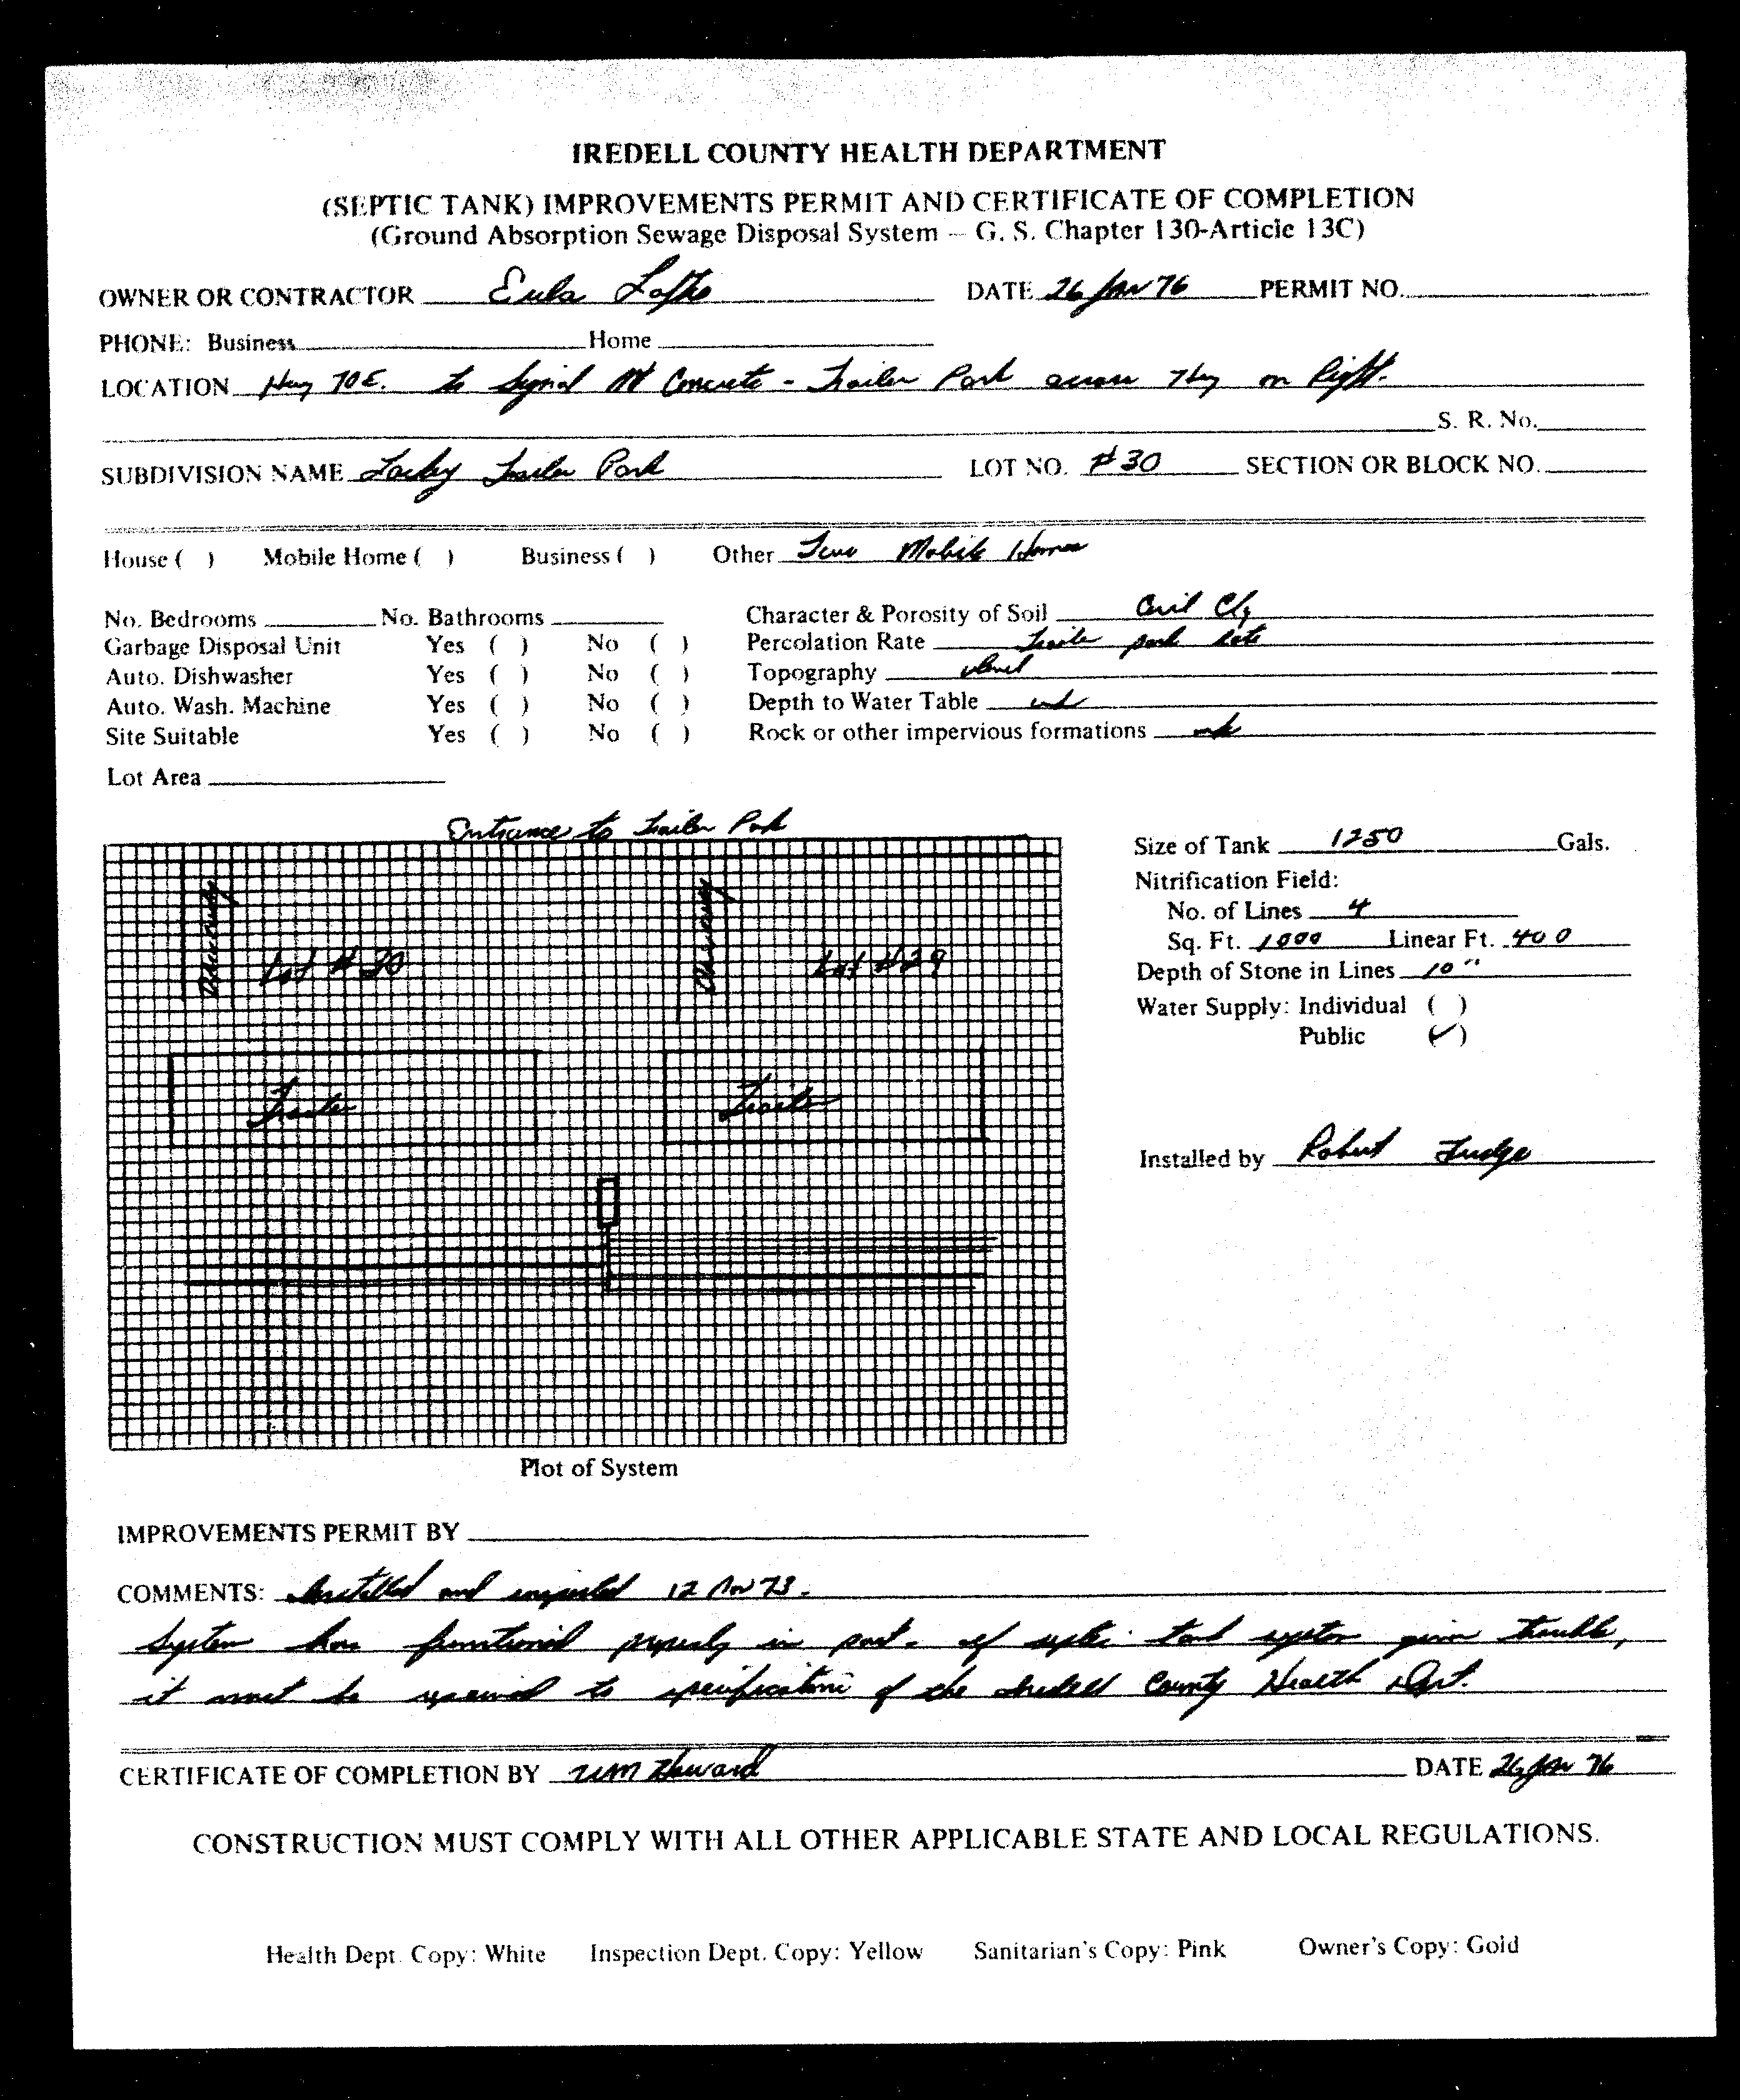 IREDELL COUNTY HEALTH DEPARTMENT
(SEPTIC TANK) IMPROVEMENTS PERMIT AND CERTIFICATE OF COMPLETION
(Ground Absorption Sewage Disposal System – G. S. Chapter 130-Article 13C)
OWNER OR CONTRACTOR Eula DATE 26 Jan 76 PERMIT NO.
PHONE: Business Home
LOCATION Hwy 70 E. to Concrete - Trailer Park across Hwy on Right.
S. R. No.
SUBDIVISION NAME Trailer Park LOT NO. #30 SECTION OR BLOCK NO.
House ( ) Mobile Home ( ) Business ( ) Other Two Mobile Homes
No. Bedrooms No. Bathrooms Character & Porosity of Soil
Garbage Disposal Unit Yes ( ) No ( ) Percolation Rate Trailer park
Auto. Dishwasher Yes ( ) No ( ) Topography
Auto. Wash. Machine Yes ( ) No ( ) Depth to Water Table
Site Suitable Yes ( ) No ( ) Rock or other impervious formations
Lot Area
Entrance to Trailer Park
Size of Tank 1250 Gals.
Nitrification Field:
No. of Lines 4
Sq. Ft. 1000 Linear Ft. 400
Depth of Stone in Lines 10"
Water Supply: Individual ( )
Public (✓)
Driveway Lot #30 Driveway Lot #29
Trailer Trailer
Installed by Robert
Plot of System
IMPROVEMENTS PERMIT BY
COMMENTS: Installed and inspected 12 Nov 73.
System has functioned properly in past. if septic tank system gives trouble,
it must be repaired to specifications of the Iredell County Health Dept.
CERTIFICATE OF COMPLETION BY DATE 26 Jan 76
CONSTRUCTION MUST COMPLY WITH ALL OTHER APPLICABLE STATE AND LOCAL REGULATIONS.
Health Dept. Copy: White Inspection Dept. Copy: Yellow Sanitarian's Copy: Pink Owner's Copy: Gold